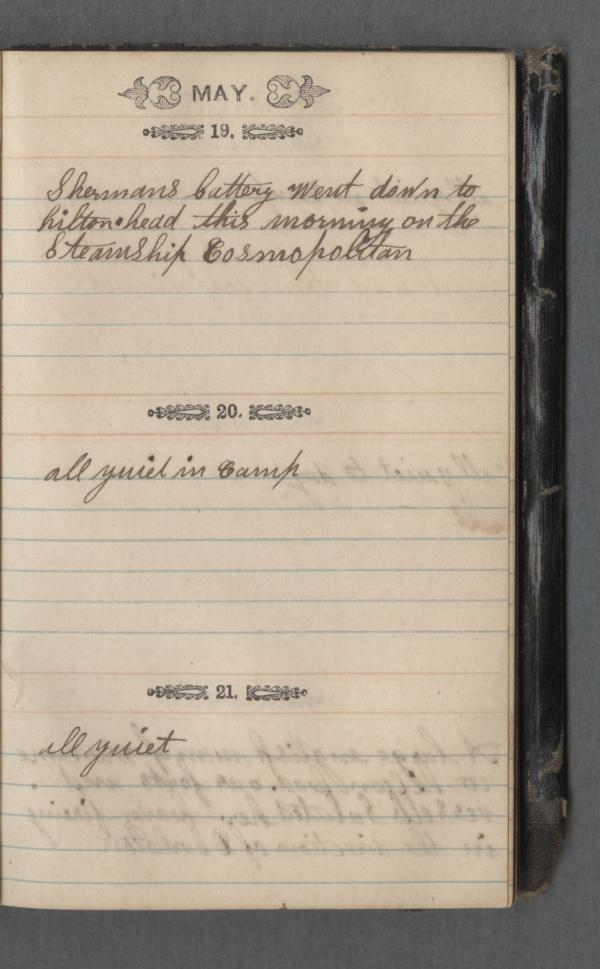 MAY.
19.
Shermans battery Went down to
hilton head this morning on the
SteamShip Cosmopolitan
20.
all quiet in Camp
21.
all quiet